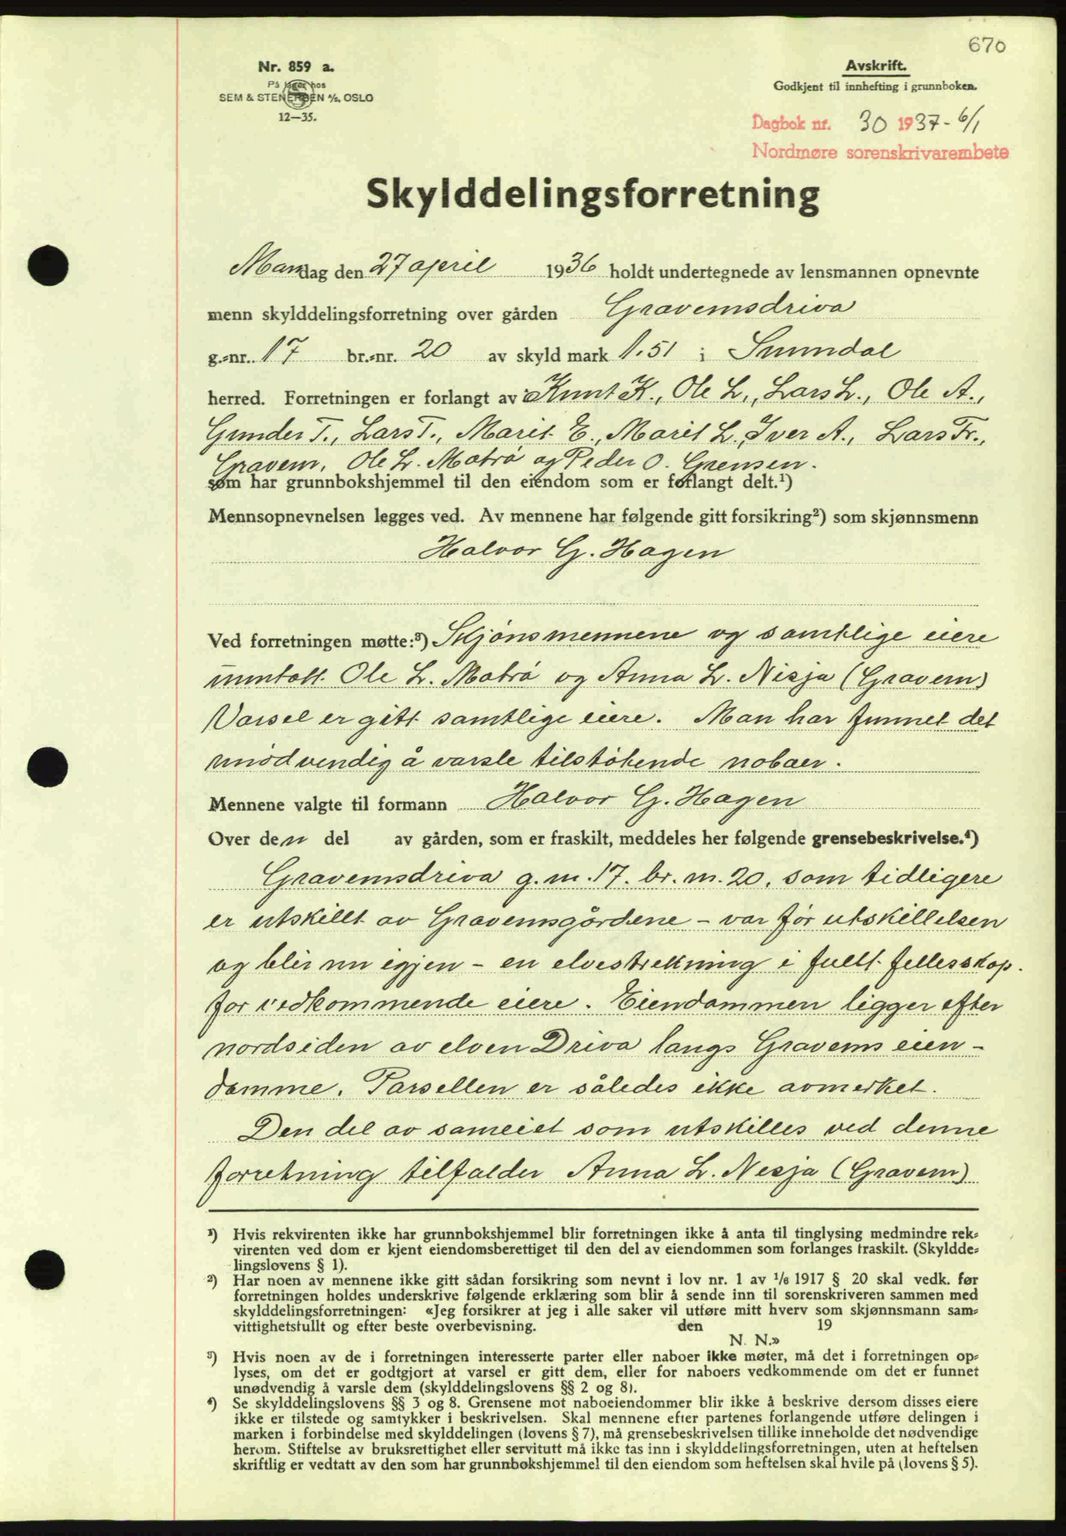 670
Nr. 859 a.
På lager hos
SEM & STENERSEN A/S, OSLO
12—35.
Avskrift.
Godkjent til innhefting i grunnboken.
Dagbok nr. 30 1937 - 6/1
Nordmøre sorenskrivarembete
Skylddelingsforretning
Mandag den 27 april 1936 holdt undertegnede av lensmannen opnevnte
menn skylddelingsforretning over gården Gravemsdriva
g.-nr. 17 br.-nr. 20 av skyld mark 1.51 i Sunndal
herred. Forretningen er forlangt av Knut K., Ole L., Lars L., Ole A.,
Gunder T., Lars T., Marit E., Marit L., Iver A., Lars Fr.,
Gravem, Ole L. Møtrø og Peder O. Grensen.
som har grunnbokshjemmel til den eiendom som er forlangt delt.¹)
Mennsopnevnelsen legges ved. Av mennene har følgende gitt forsikring²) som skjønnsmenn
Halvor G. Hagen
Ved forretningen møtte:³) Skjønsmennene og samtlige eiere
unntatt Ole L. Møtrø og Anna L. Nesja (Gravem)
Varsel er gitt samtlige eiere. Man har funnet det
unødvendig å varsle tilstøtende naboer.
Mennene valgte til formann Halvor G. Hagen
Over den del av gården, som er fraskilt, meddeles her følgende grensebeskrivelse.⁴)
Gravemsdriva g.nr. 17. br.nr. 20, som tidligere
er utskillt av Gravemsgårdene - var før utskillelsen
og blir nu igjen - en elvestrekning i fullt fellesskap.
for vedkommende eiere. Eiendommen ligger efter
nordsiden av elven Driva langs Gravems eien-
domme. Parsellen er således ikke avmerket.
Den del av sameiet som utskilles ved denne
forretning tilfalder Anna L. Nesja (Gravem)
¹) Hvis rekvirenten ikke har grunnbokshjemmel blir forretningen ikke å anta til tinglysing medmindre rek-
virenten ved dom er kjent eiendomsberettiget til den del av eiendommen som forlanges fraskilt. (Skyldde-
lingslovens § 1).
²) Har noen av mennene ikke gitt sådan forsikring som nevnt i lov nr. 1 av 1/6 1917 § 20 skal vedk. før
forretningen holdes underskrive følgende erklæring som blir å sende inn til sorenskriveren sammen med
skylddelingsforretningen: «Jeg forsikrer at jeg i alle saker vil utføre mitt hverv som skjønnsmann sam-
vittighetsfullt og efter beste overbevisning. den 19
N. N.»
³) Hvis noen av de i forretningen interesserte parter eller naboer ikke møter, må det i forretningen op-
lyses, om det er godtgjort at varsel er gitt dem, eller for naboers vedkommende om det er funnet
unødvendig å varsle dem (skylddelingslovens §§ 2 og 8).
⁴) Se skylddelingslovens §§ 3 og 8. Grensene mot naboeiendommer blir ikke å beskrive dersom disses eiere
ikke er tilstede og samtykker i beskrivelsen. Skal mennene efter partenes forlangende utføre delingen i
marken i forbindelse med skylddelingen (lovens § 7), må grensebeskrivelsen tillike inneholde det nødvendige
herom. Stiftelse av bruksrettighet eller servitutt må ikke tas inn i skylddelingsforretningen, uten at heftelsen
skriftlig er vedtatt av den som har grunnbokshjemmel til den eiendom som heftelsen skal hvile på (lovens § 5).